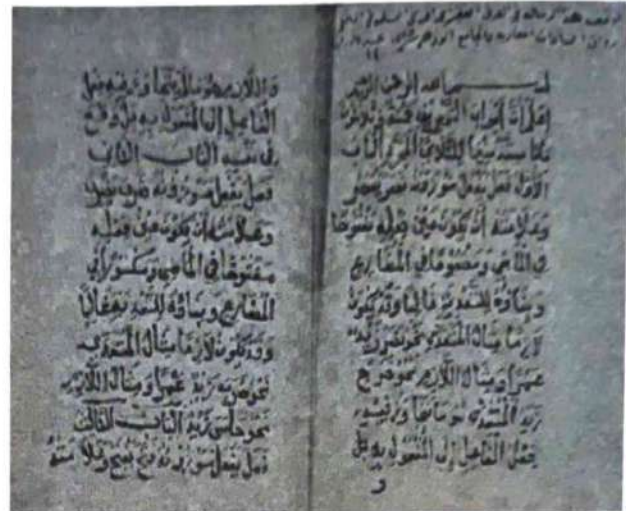 هذه الرسالة
رواق السادات المغاربة بالجامع الازهر
بسم الله الرحمن الرحيم
اعلم ان ابواب التصريف خمسة وثلاثون
بابا ستة منها للثلاثي المجرد الباب
الاول فعل يفعل موزونه نصر ينصر
وعلامته ان يكون عين فعله مفتوحا
في الماضي ومضموما في المضارع
وبناؤه للتعدية غالبا وقد يكون
لازما مثال المتعدي نحو نصر زيد
عمرا ومثال اللازم نحو خرج
زيد المتعدي هو ما
فعل الفاعل الى المفعول به
و
واللازم هو ما لم يتجاوز فيه فعل
الفاعل الى المفعول به بل وقع
في نفسه الباب الثاني
فعل يفعل موزونه ضرب يضرب
وعلامته ان يكون عين فعله
مفتوحا في الماضي ومكسورا في
المضارع وبناؤه للتعدية غالبا
وقد يكون لازما مثال المتعدي
نحو ضرب زيد عمرا ومثال اللازم
نحو جلس زيد الباب الثالث
فعل يفعل موزونه فتح يفتح وعلامته